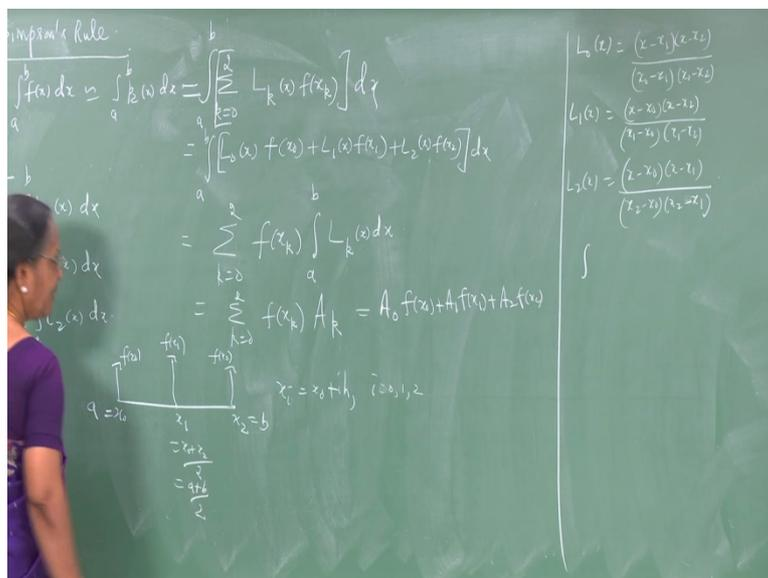 Simpson's Rule.
∫_a^b f(x) dx ≃ ∫_a^b k(x) dx = ∫_a^b [ ∑_{k=0}^2 L_k(x) f(x_k) ] dx
= ∫_a^b [L_0(x) f(x_0) + L_1(x) f(x_1) + L_2(x) f(x_2)] dx
b
(x) dx
= ∑_{k=0}^2 f(x_k) ∫_a^b L_k(x) dx
x) dx
∫L_2(x) dx.
= ∑_{k=0}^2 f(x_k) A_k = A_0 f(x_0) + A_1 f(x_1) + A_2 f(x_2)
f(x_0) f(x_1) f(x_2)
x_i = x_0 + ih, i=0,1,2
a = x_0 x_1 x_2 = b
= (x_0+x_2)/2
= (a+b)/2
L_0(x) = (x-x_1)(x-x_2) / (x_0-x_1)(x_0-x_2)
L_1(x) = (x-x_0)(x-x_2) / (x_1-x_0)(x_1-x_2)
L_2(x) = (x-x_0)(x-x_1) / (x_2-x_0)(x_2-x_1)
∫